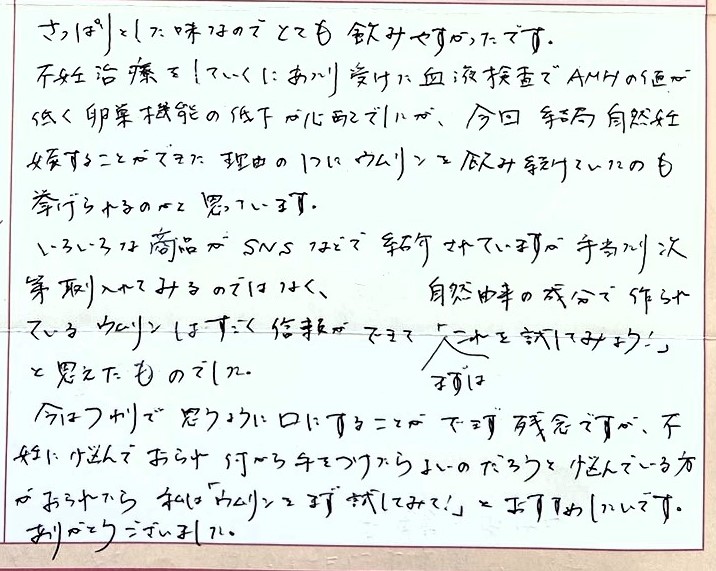 さっぱりとした味なのでとても飲みやすかったです。
不妊治療をしていくにあたり受けた血液検査でAMHの値が
低く卵巣機能の低下が心配でしたが、今回結局自然妊
娠することができた理由の1つにウムリンを飲み続けていたのも
挙げられるのかと思っています。
いろいろな商品がSNSなどで紹介されていますが手当たり次
第取り入れてみるのではなく、自然由来の成分で作られ
ているウムリンはすごく信頼ができて「これを試してみよう!」
まずは
と思えたものでした。
今はつわりで思うように口にすることができず残念ですが、不
妊に悩んでおられ何から手をつけたらよいのだろうと悩んでいる方
がおられたら私は「ウムリンをまず試してみて!」とおすすめしたいです。
ありがとうございました。